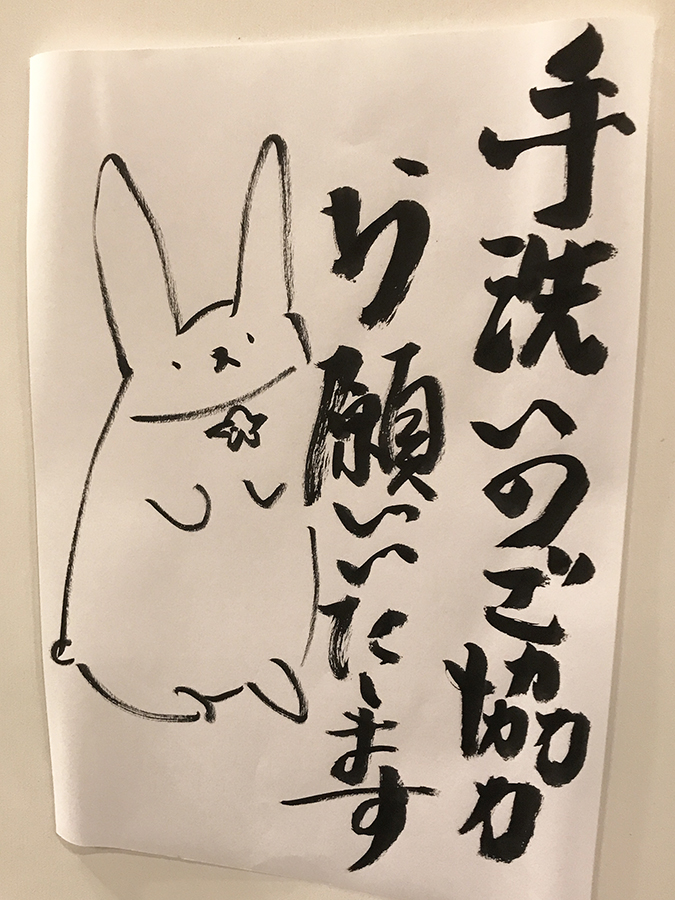 手洗いのご協力
お願いいたします